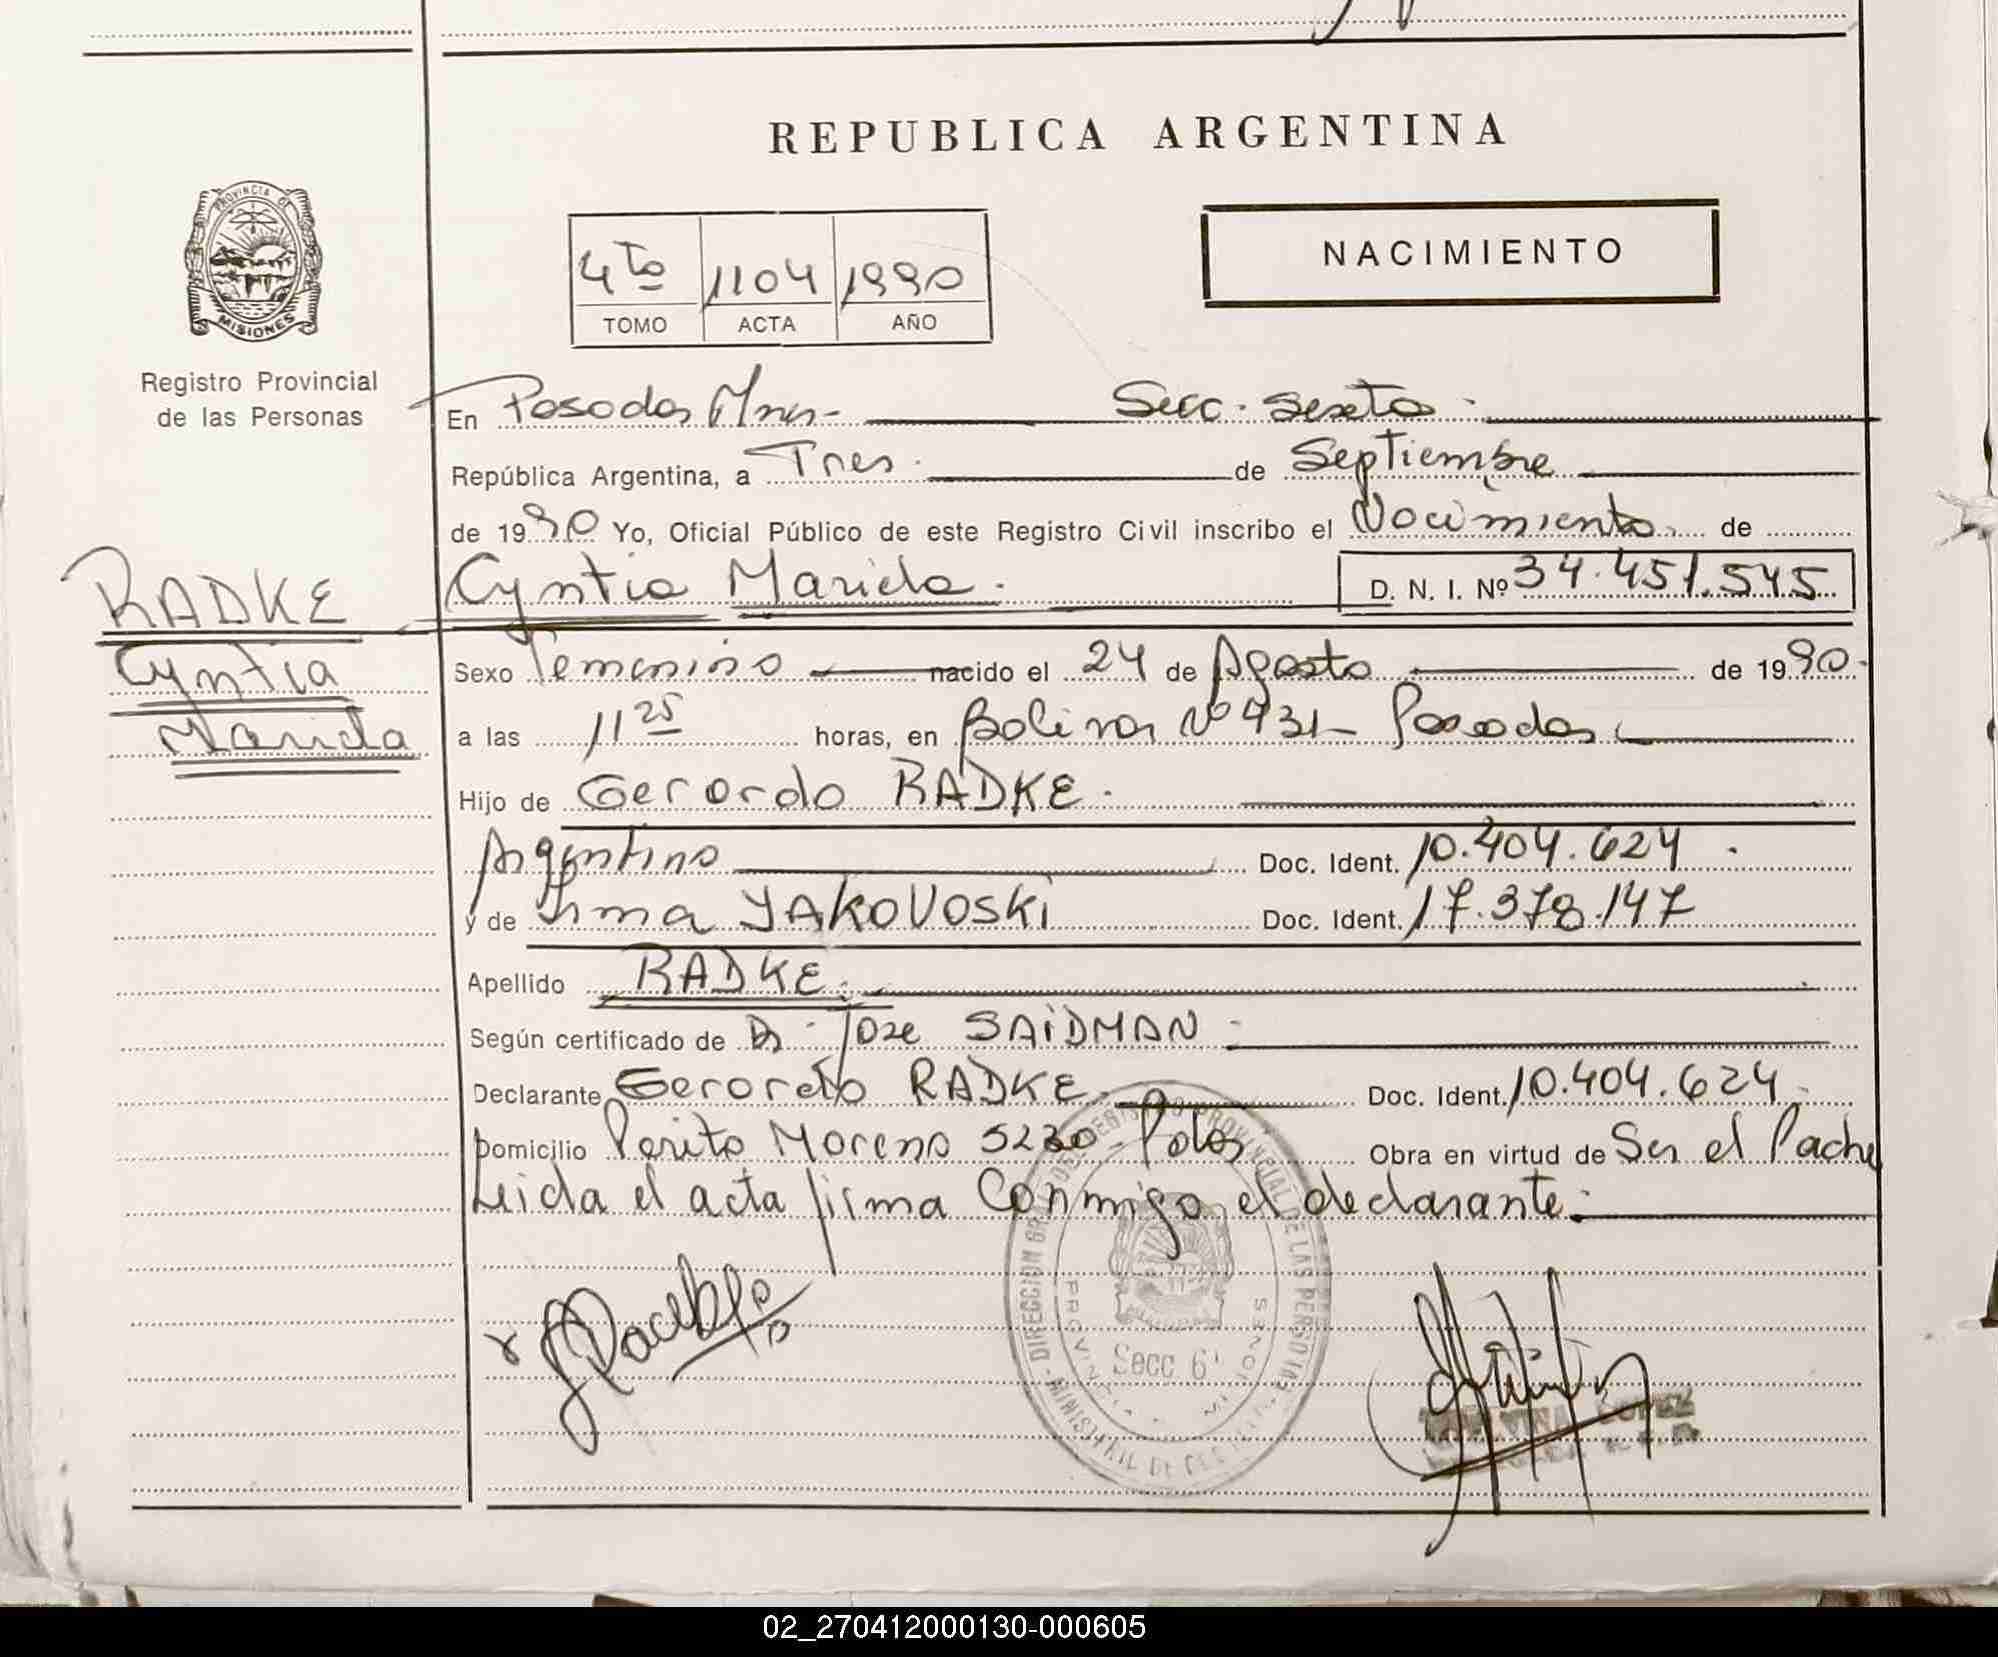 REPUBLICA ARGENTINA
PROVINCIA DE
MISIONES
Registro Provincial
de las Personas
4to 1104 1990
TOMO ACTA AÑO
NACIMIENTO
En Posadas Mnes- Secc. Sexta.
República Argentina, a Tres. de Septiembre
de 1990 Yo, Oficial Público de este Registro Civil inscribo el Nacimiento de
Cyntia Mariela. D. N. I. Nº 34.451.545
RADKE
Cyntia
Mariela
Sexo Femenino nacido el 24 de Agosto de 1990.
a las 11 25 horas, en Bolivar Nº 431- Posadas
Hijo de Gerardo RADKE.
Argentino Doc. Ident. 10.404.624.
y de Irma YAKOVOSKi Doc. Ident. 17.378.147
Apellido RADKE.
Según certificado de Dr. Jose SAiDMAN
Declarante Gerardo RADKE Doc. Ident. 10.404.624.
Domicilio Perito Moreno 5230- Pdas Obra en virtud de Ser el Padre
Leida el acta firma Conmigo el declarante.
Secc 6
LOPEZ
02_270412000130-000605